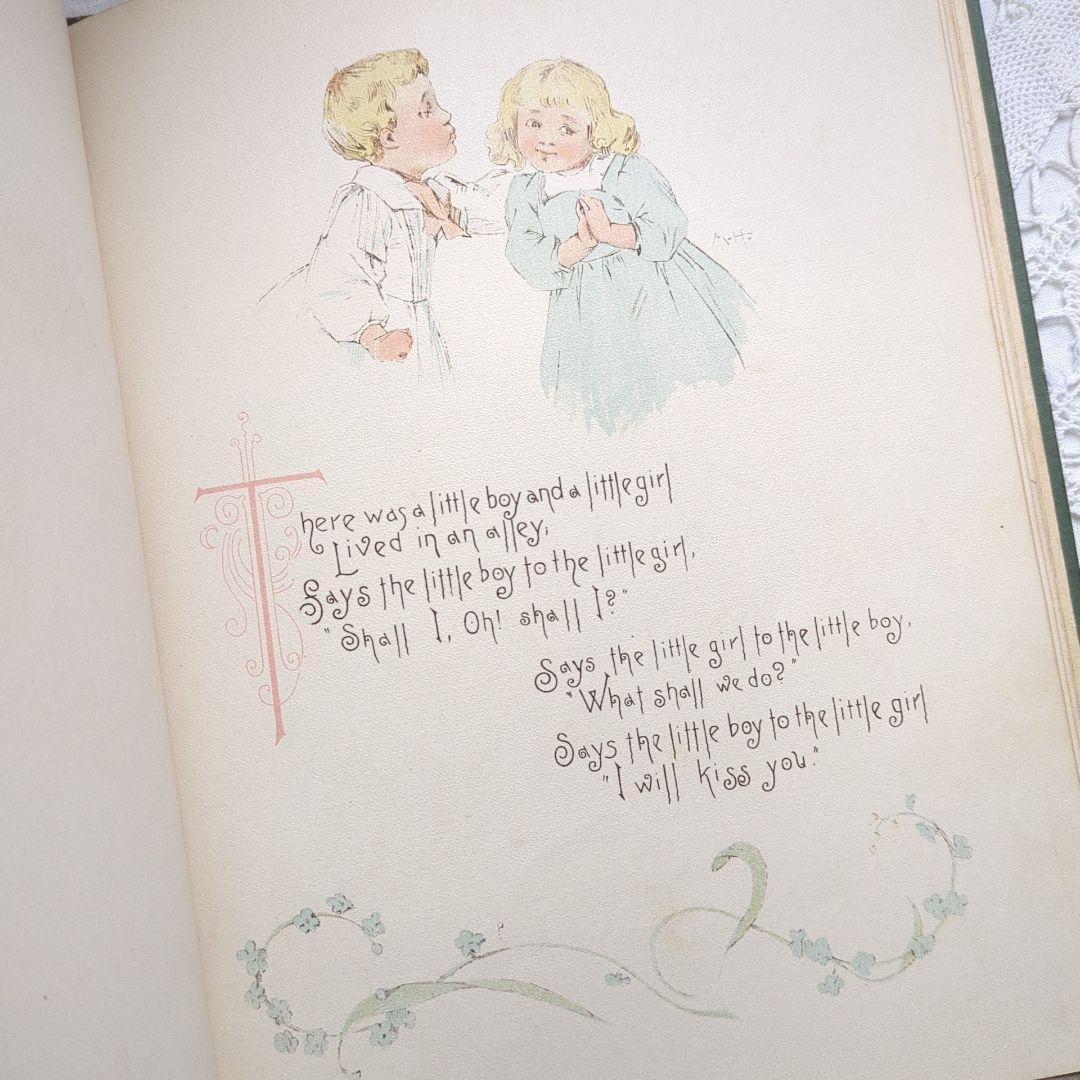 M.H.
There was a little boy and a little girl
Lived in an alley,
Says the little boy to the little girl,
"Shall I, Oh! shall I?"
Says the little girl to the little boy,
"What shall we do?"
Says the little boy to the little girl
"I will kiss you."